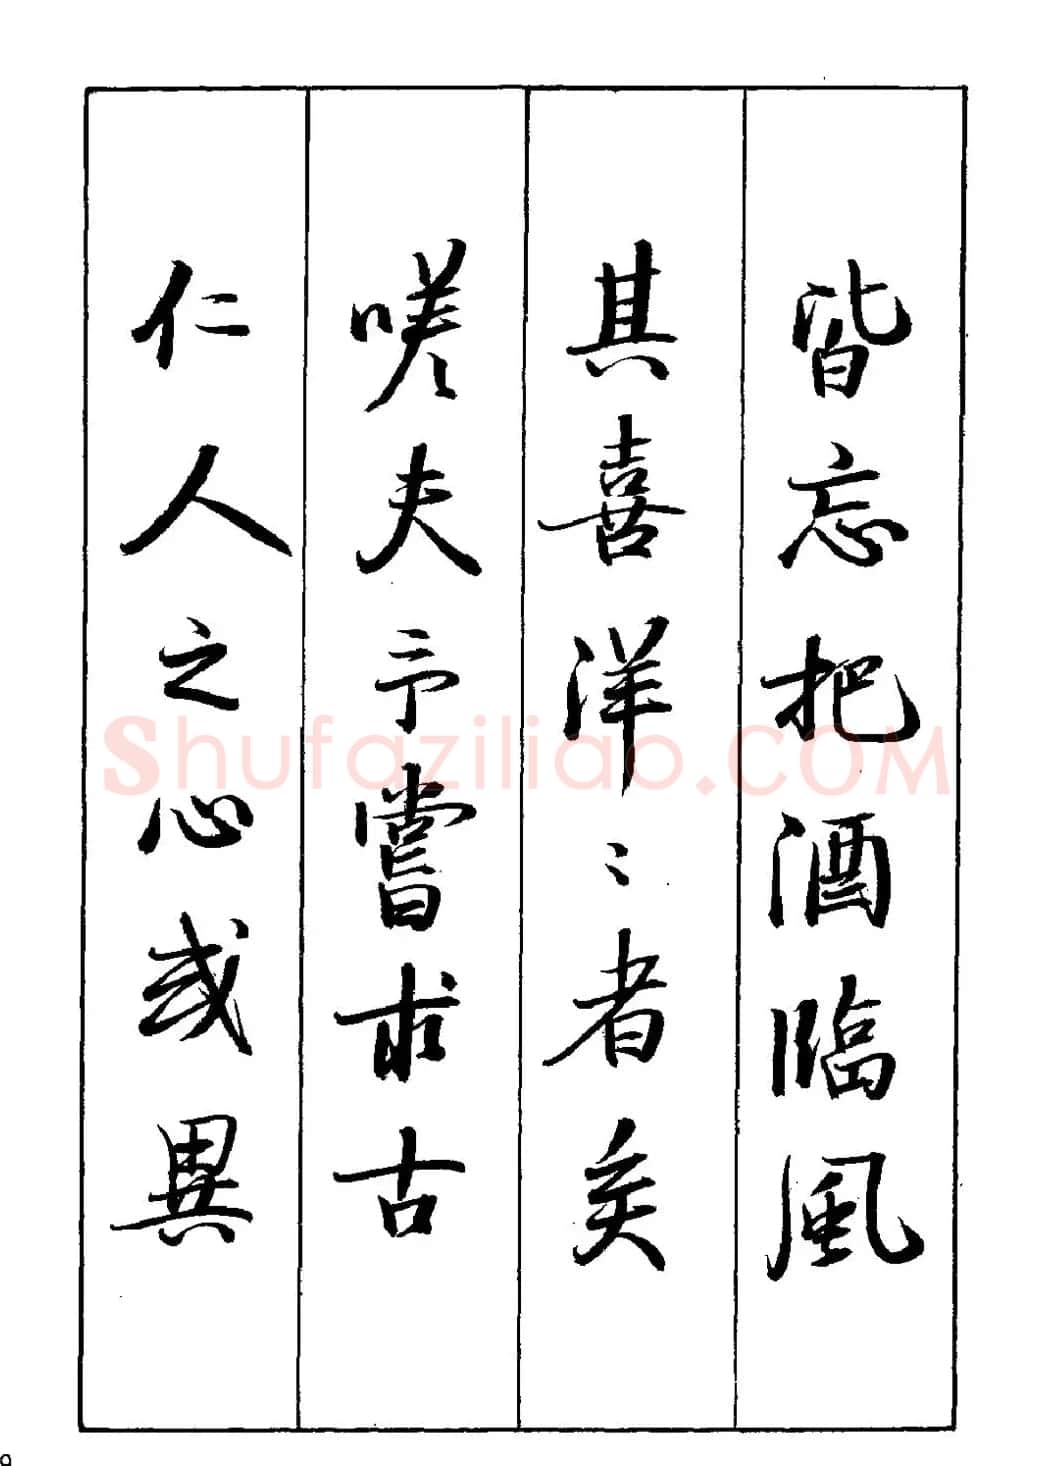 皆忘把酒臨風
其喜洋〻者矣
嗟夫予嘗求古
仁人之心或異
Shufaziliao.COM
9